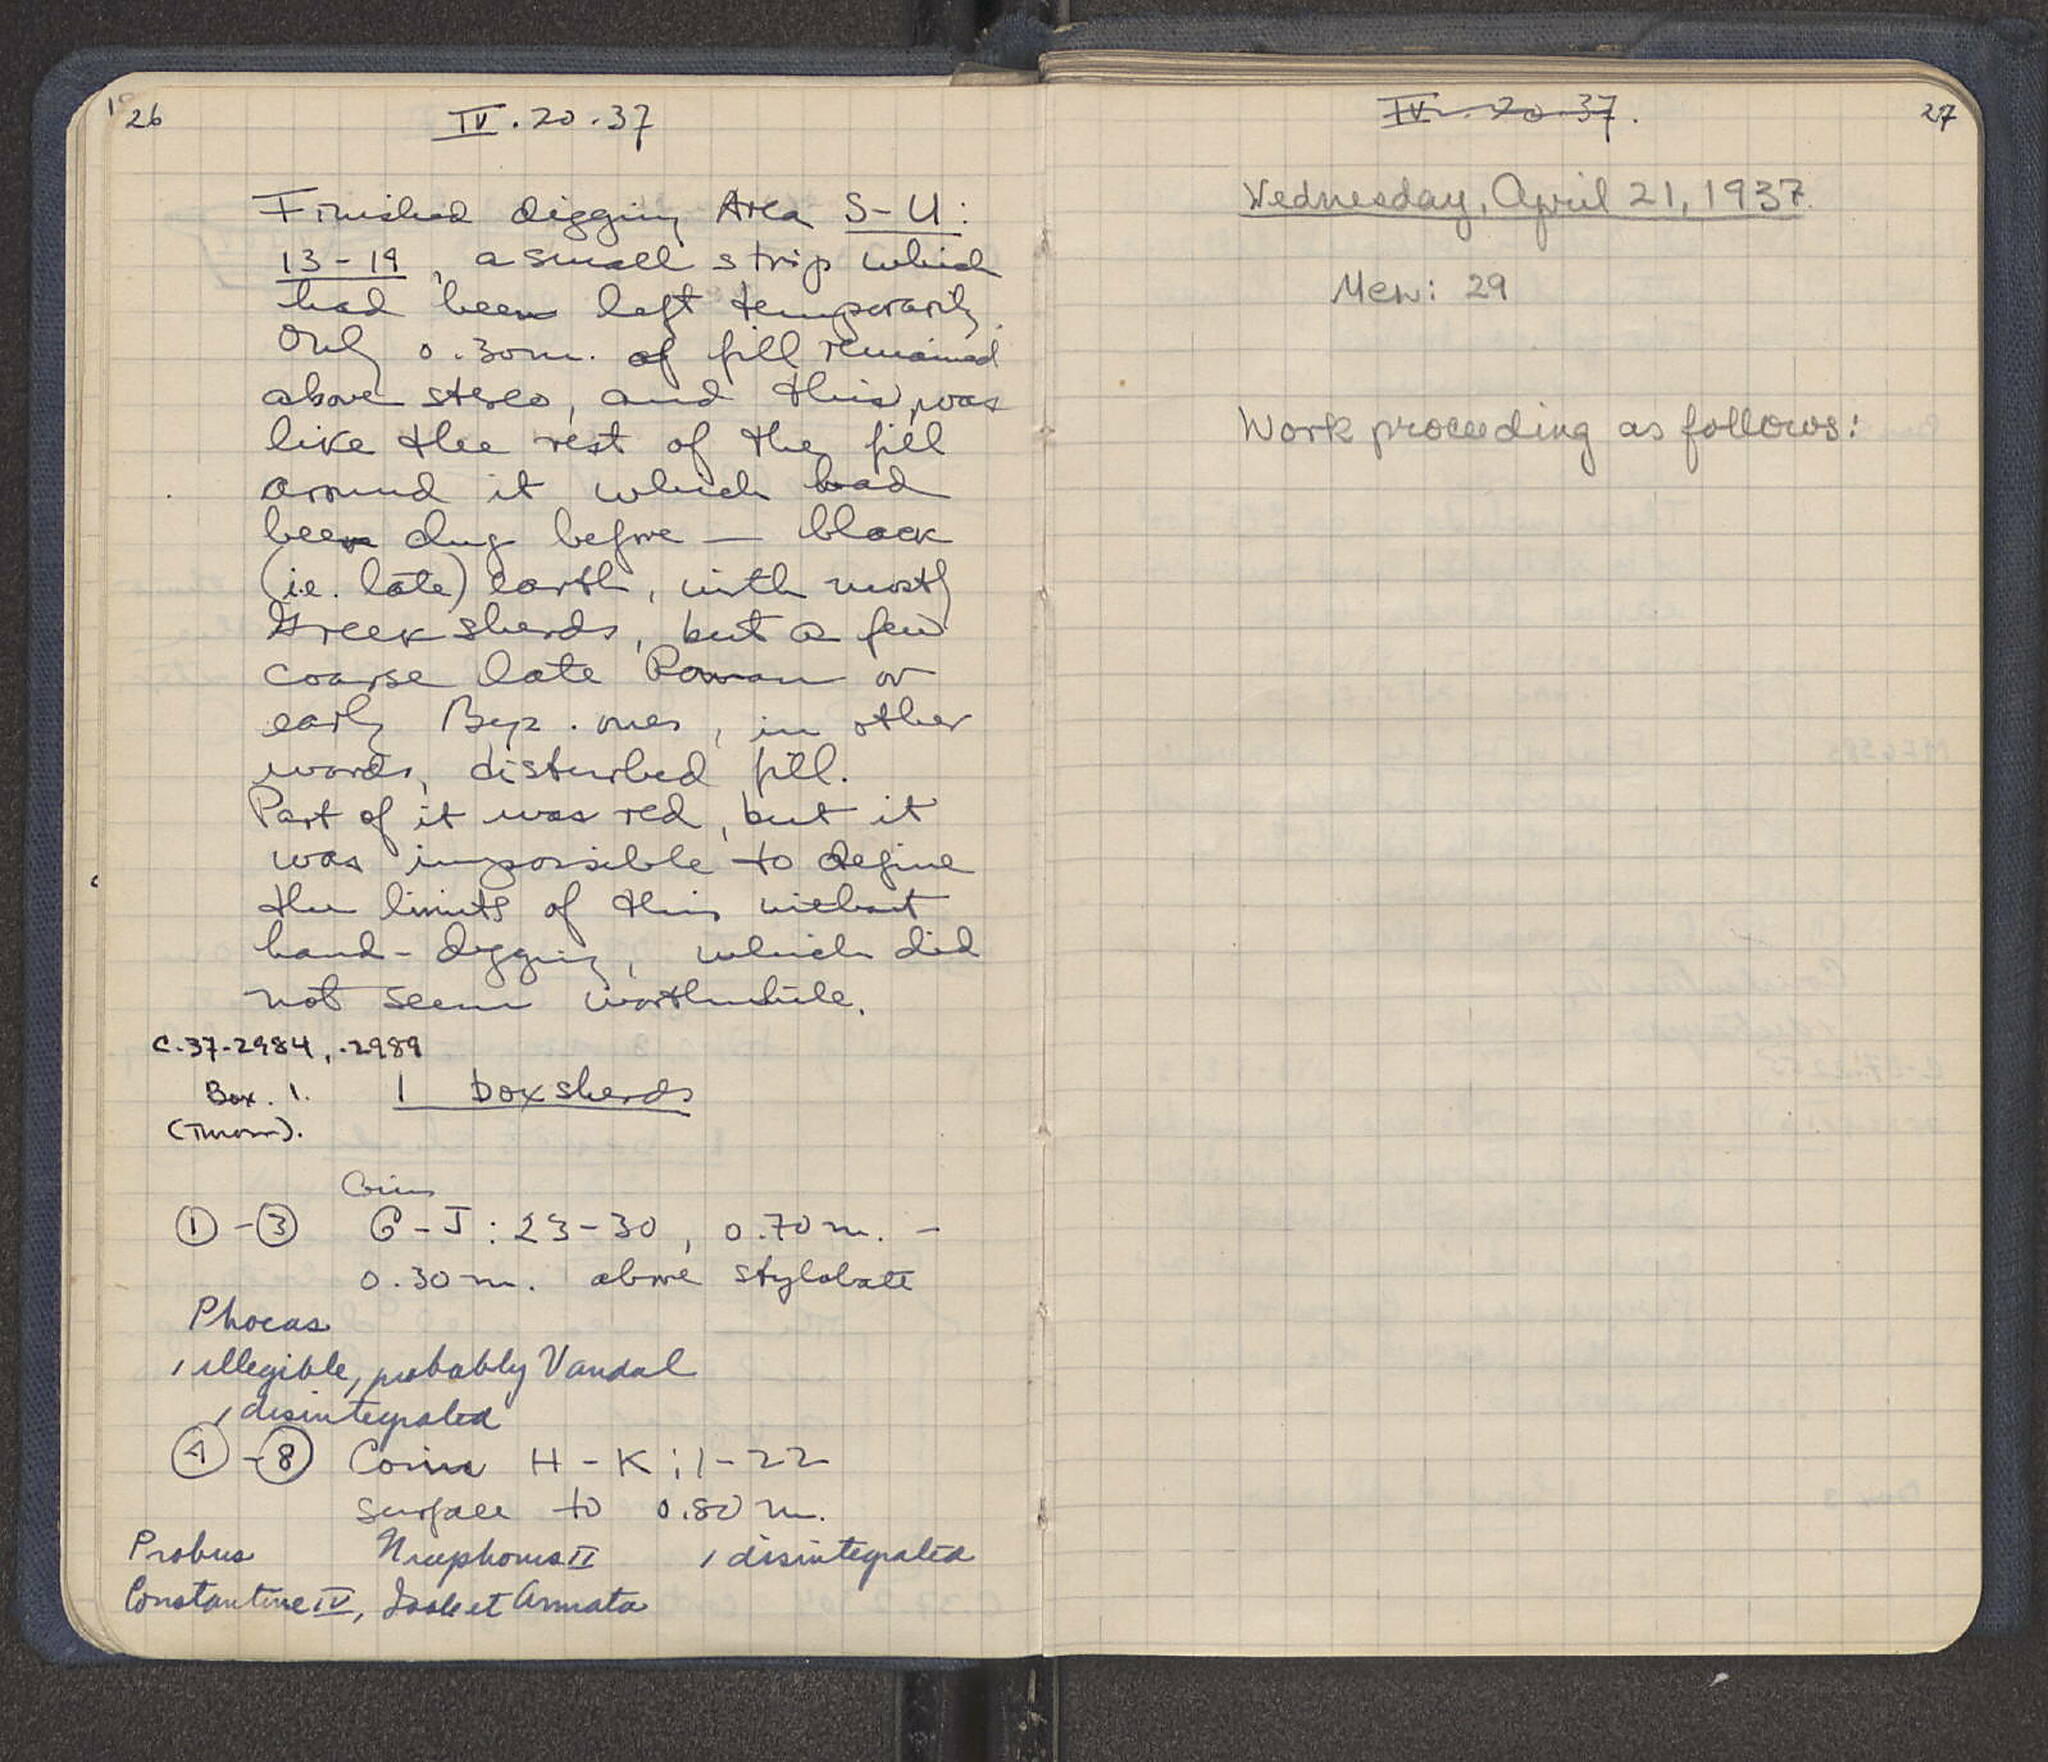 26
IV. 20. 37
Finished digging Area S-U:
13-19, a small strip which
had been left temporarily.
Only 0.30m. of fill remained
above stereo, and this was
like the rest of the fill
around it which had
been dug before — black
(i.e. late) earth, with mostly
Greek sherds, but a few
coarse late Roman or
early Byz. ones, in other
words, disturbed fill.
Part of it was red, but it
was impossible to define
the limits of this without
hand-digging, which did
not seem worthwhile.
C.37-2984, -2989
Box. 1. 1 box sherds
(Thrown).
Coins
①-③ G-J: 23-30, 0.70m. -
0.30m. above stylobate
Phocas
1 illegible, probably Vandal
1 disintegrated
④-⑧ Coins H-K: 1-22
surface to 0.80m.
Probus Nicephorus II 1 disintegrated
Constantine IV,
IV. 20. 37.
27
Wednesday, April 21, 1937.
Men: 29
Work proceeding as follows: